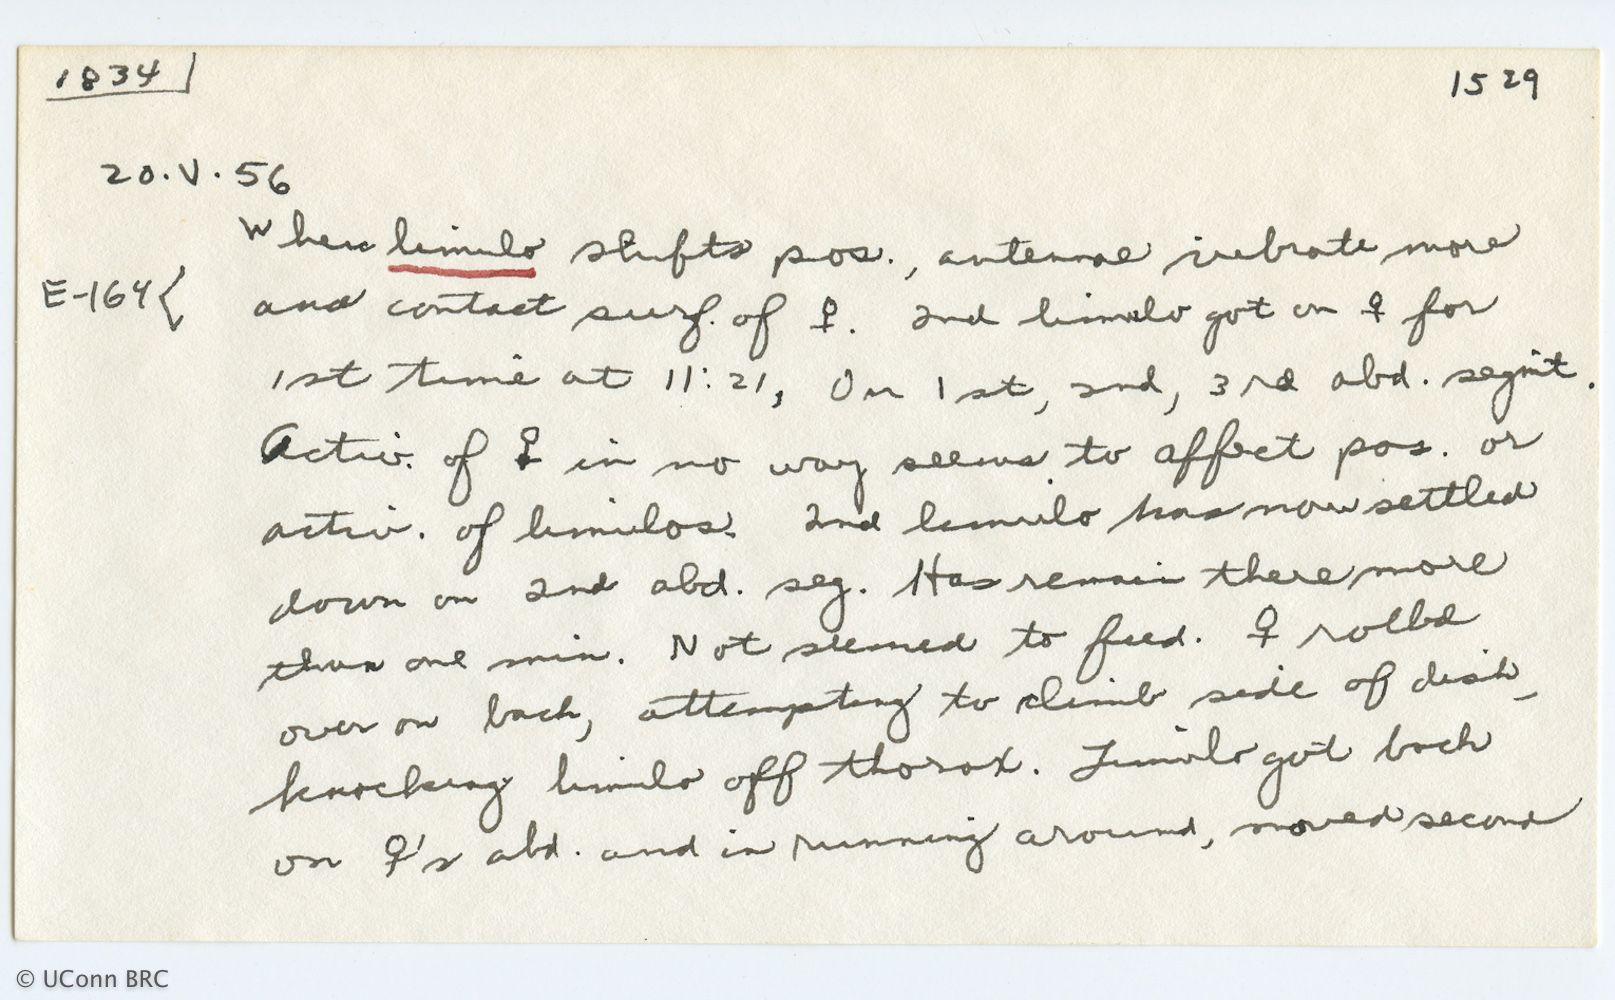 1834
1529
20.V.56
When limulo shifts pos., antennae vibrate more
E-164{
and contact surf. of ♀. 2nd limulo got on ♀ for
1st time at 11:21, On 1st, 2nd, 3rd abd. segmt.
Activ. of ♀ in no way seems to affect pos. or
activ. of limulos. 2nd limulo has now settled
down on 2nd abd. seg. Has remain there more
than one min. Not seemed to feed. ♀ rolled
over on back, attempting to climb side of dish,
knocking limulo off thorax. Limulo got back
on ♀'s abd. and in running around, moved second
© UConn BRC